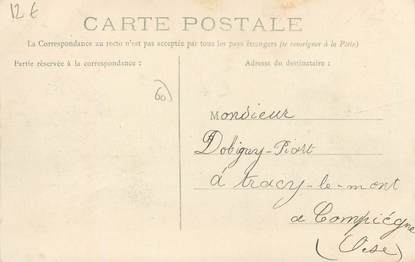 12 €
CARTE POSTALE
La Correspondance au recto n'est pas acceptée par tous les pays étrangers (se renseigner à la Poste)
Partie réservée à la correspondance :
Adresse du destinataire :
60
Monsieur
Dobigny-Piart
à tracy-le-mont
a Compiégne
(Oise)